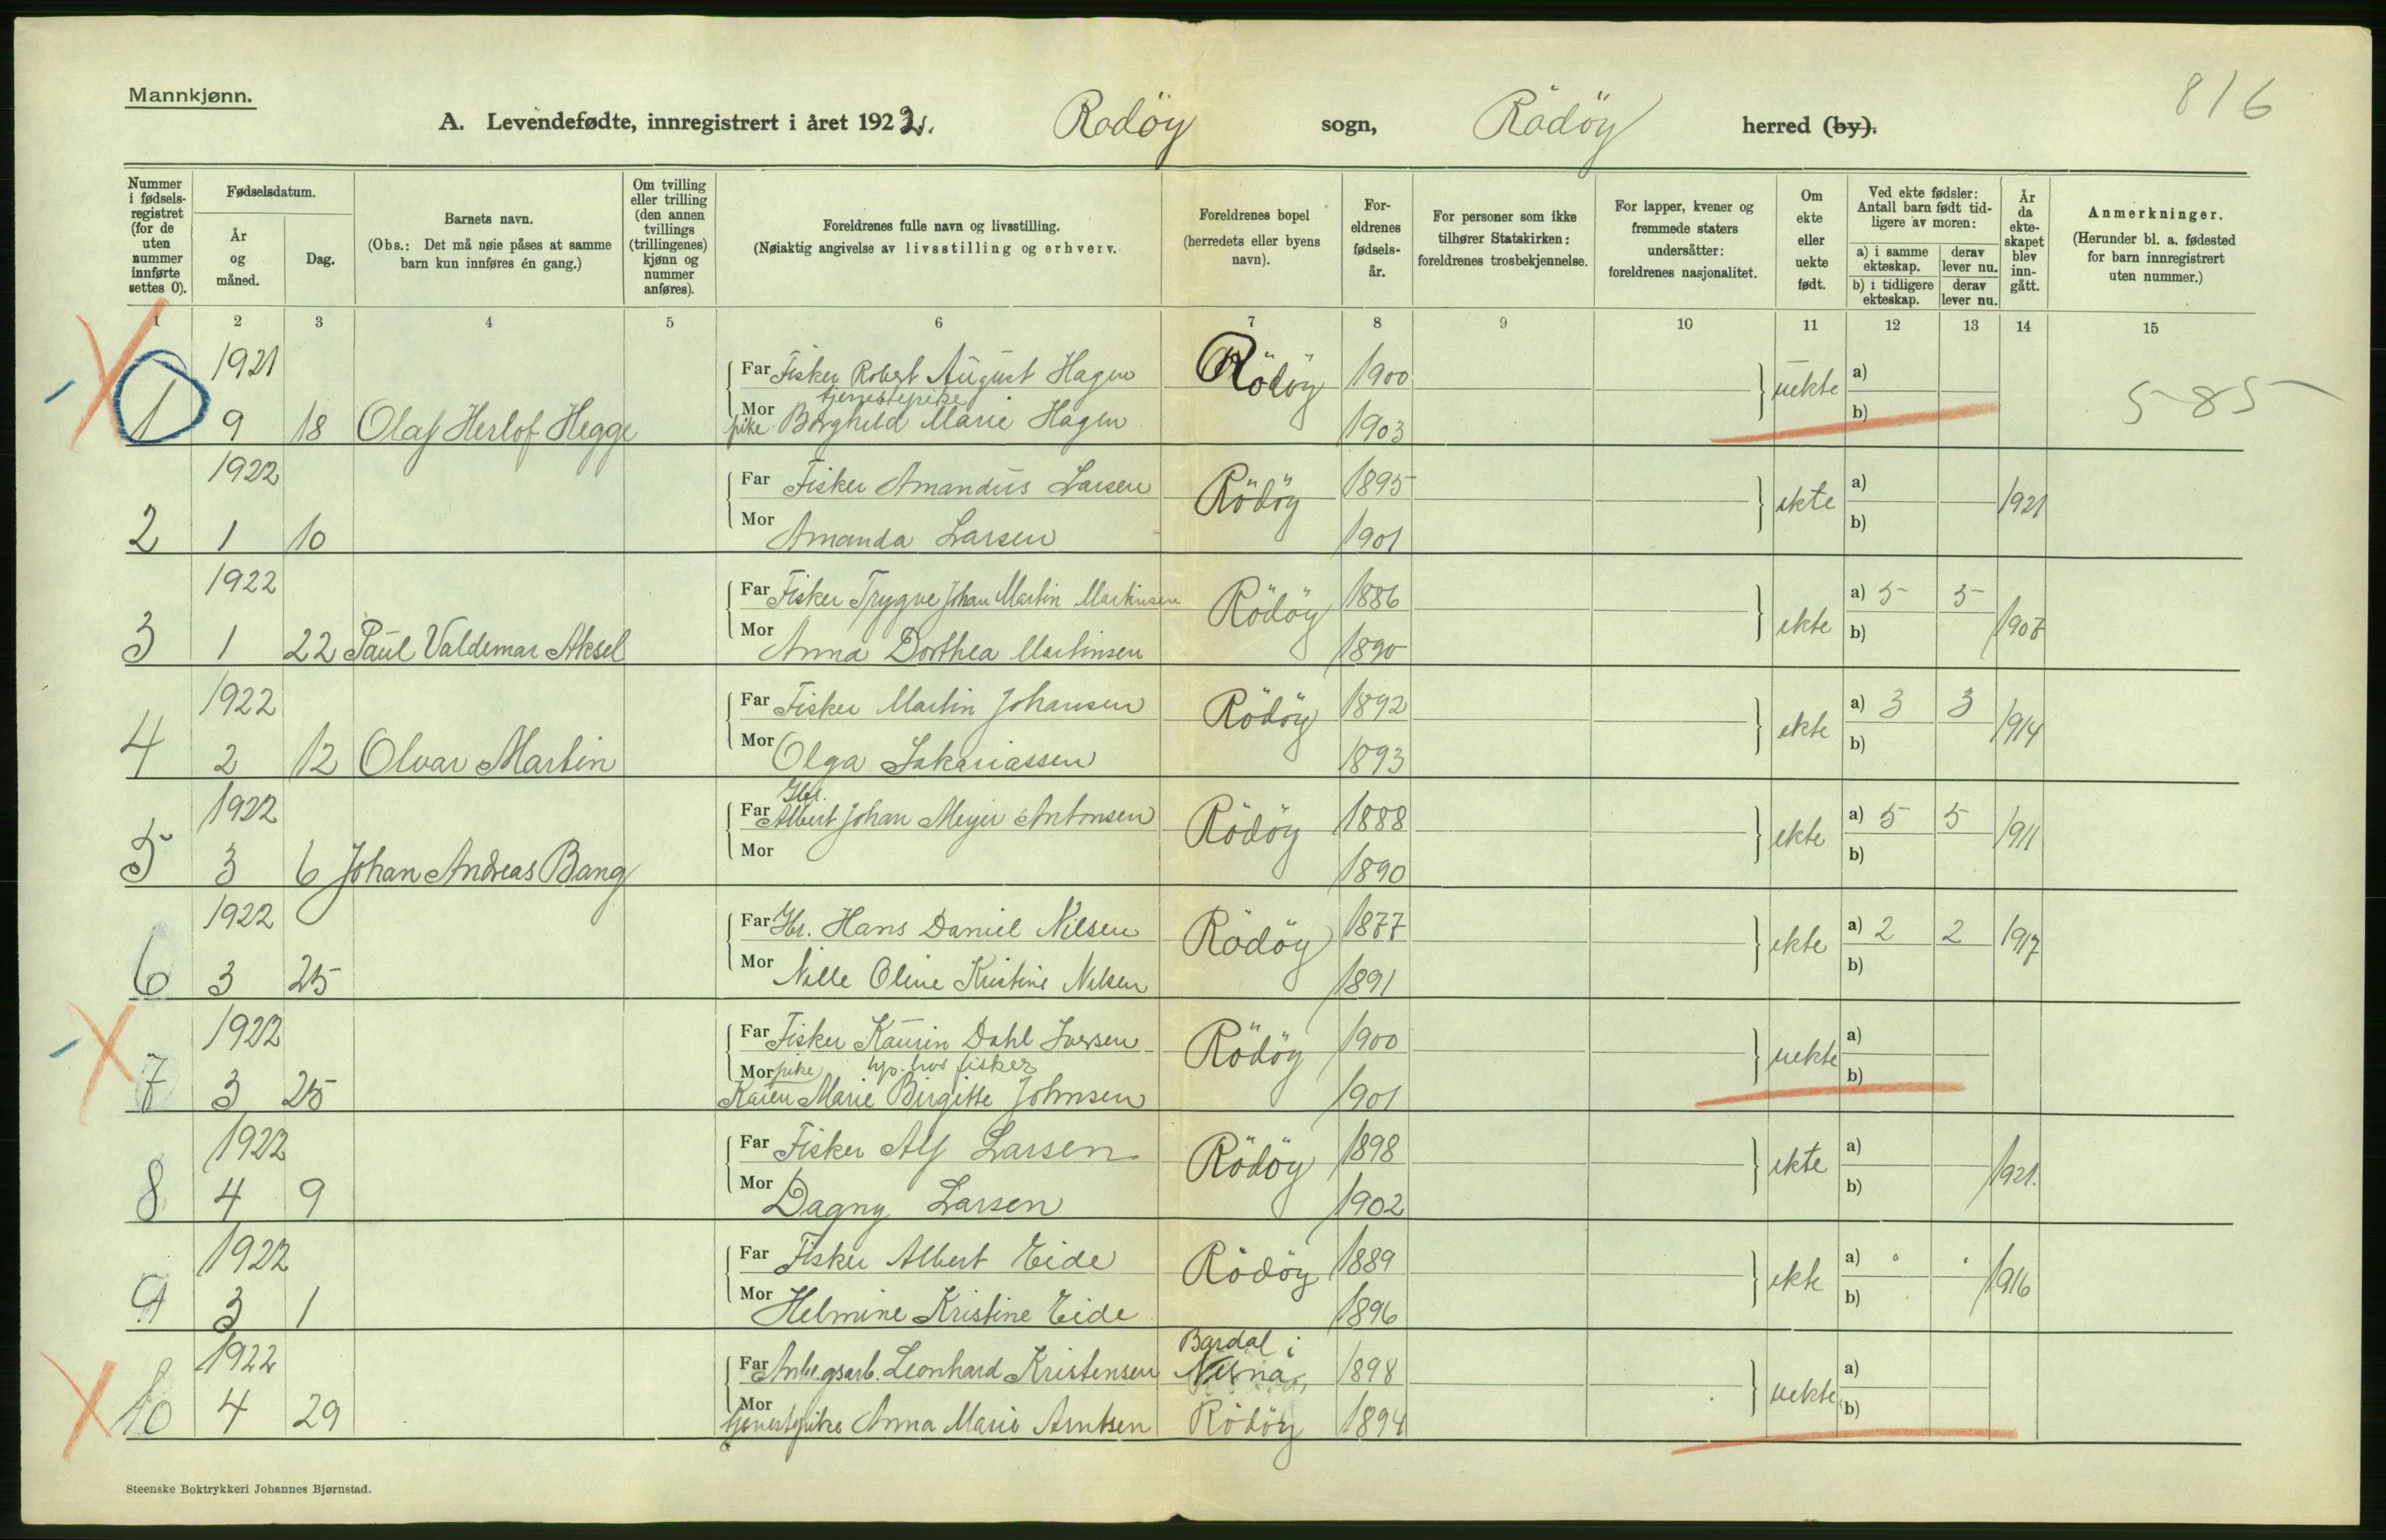 Mannkjønn.
816
A. Levendefødte, innregistrert i året 1922. Rödöy sogn, Rödöy herred (by).
Nummer i fødselsregistret (for de uten nummer innførte settes 0).
Fødselsdatum.
År og måned.
Dag.
Barnets navn.
(Obs.: Det må nøie påses at samme barn kun innføres én gang.)
Om tvilling eller trilling (den annen tvillings (trillingenes) kjønn og nummer anføres).
Foreldrenes fulle navn og livsstilling.
(Nøiaktig angivelse av livsstilling og erhverv.
Foreldrenes bopel (herredets eller byens navn).
Foreldrenes fødselsår.
For personer som ikke tilhører Statskirken: foreldrenes trosbekjennelse.
For lapper, kvener og fremmede staters undersåtter: foreldrenes nasjonalitet.
Om ekte eller uekte født.
Ved ekte fødsler: Antall barn født tidligere av moren:
a) i samme ekteskap. derav lever nu.
b) i tidligere ekteskap. derav lever nu.
År da ekteskapet blev inngått.
Anmerkninger.
(Herunder bl. a. fødested for barn innregistrert uten nummer.)
1 2 3 4 5 6 7 8 9 10 11 12 13 14 15
1921 Far Fisker Robert August Hagen Rödöy 1900 uekte a)
tjenestepike
1 9 18 Olaf Herlof Hegge Mor pike Borghild Marie Hagen 1903 b) 585
1922 Far Fisker Amandus Larsen Rödöy 1895 ekte a) 1921
2 1 10 Mor Amanda Larsen 1901 b)
1922 Far Fisker Trygve Johan Martin Martinsen Rödöy 1886 ekte a) 5 5 1908
3 1 22 Paul Valdemar Aksel Mor Anna Dorthea Martinsen 1890 b)
1922 Far Fisker Martin Johansen Rödöy 1892 ekte a) 3 3 1914
4 2 12 Olvar Martin Mor Olga Sakariassen 1893 b)
1922 Far Gbr. Albert Johan Meyer Antonsen Rödöy 1888 ekte a) 5 5 1911
5 3 6 Johan Andreas Bang Mor 1890 b)
1922 Far Gbr. Hans Daniel Nilsen Rödöy 1877 ekte a) 2 2 1917
6 3 25 Mor Nille Oline Kristine Nilsen 1891 b)
1922 Far Fisker Kaurin Dahl Iversen Rödöy 1900 uekte a)
Mor pike hjp. hos fisker
7 3 25 Karen Marie Birgitte Johnsen 1901 b)
1922 Far Fisker Alf Larsen Rödöy 1898 ekte a) 1921.
8 4 9 Mor Dagny Larsen 1902 b)
1922 Far Fisker Albert Eide Rödöy 1889 ekte a) 1916
9 3 1 Mor Helmine Kristine Eide 1896 b)
Bardal i
1922 Far Anlegsarb. Leonhard Kristensen Nesna, 1898 uekte a)
10 4 29 Mor tjenestepike Anna Marie Arntsen Rödöy 1894 b)
Steenske Boktrykkeri Johannes Bjørnstad.